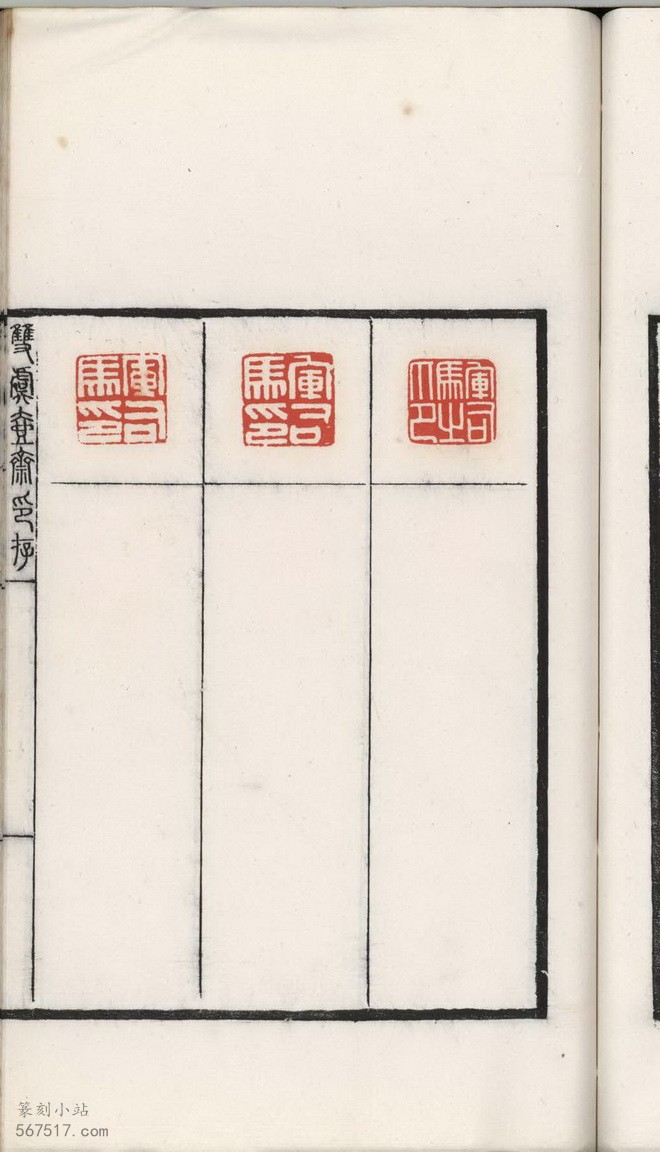 軍司馬之印
軍司馬印
軍司馬印
雙虞壺齋印存
篆刻小站
567517.com